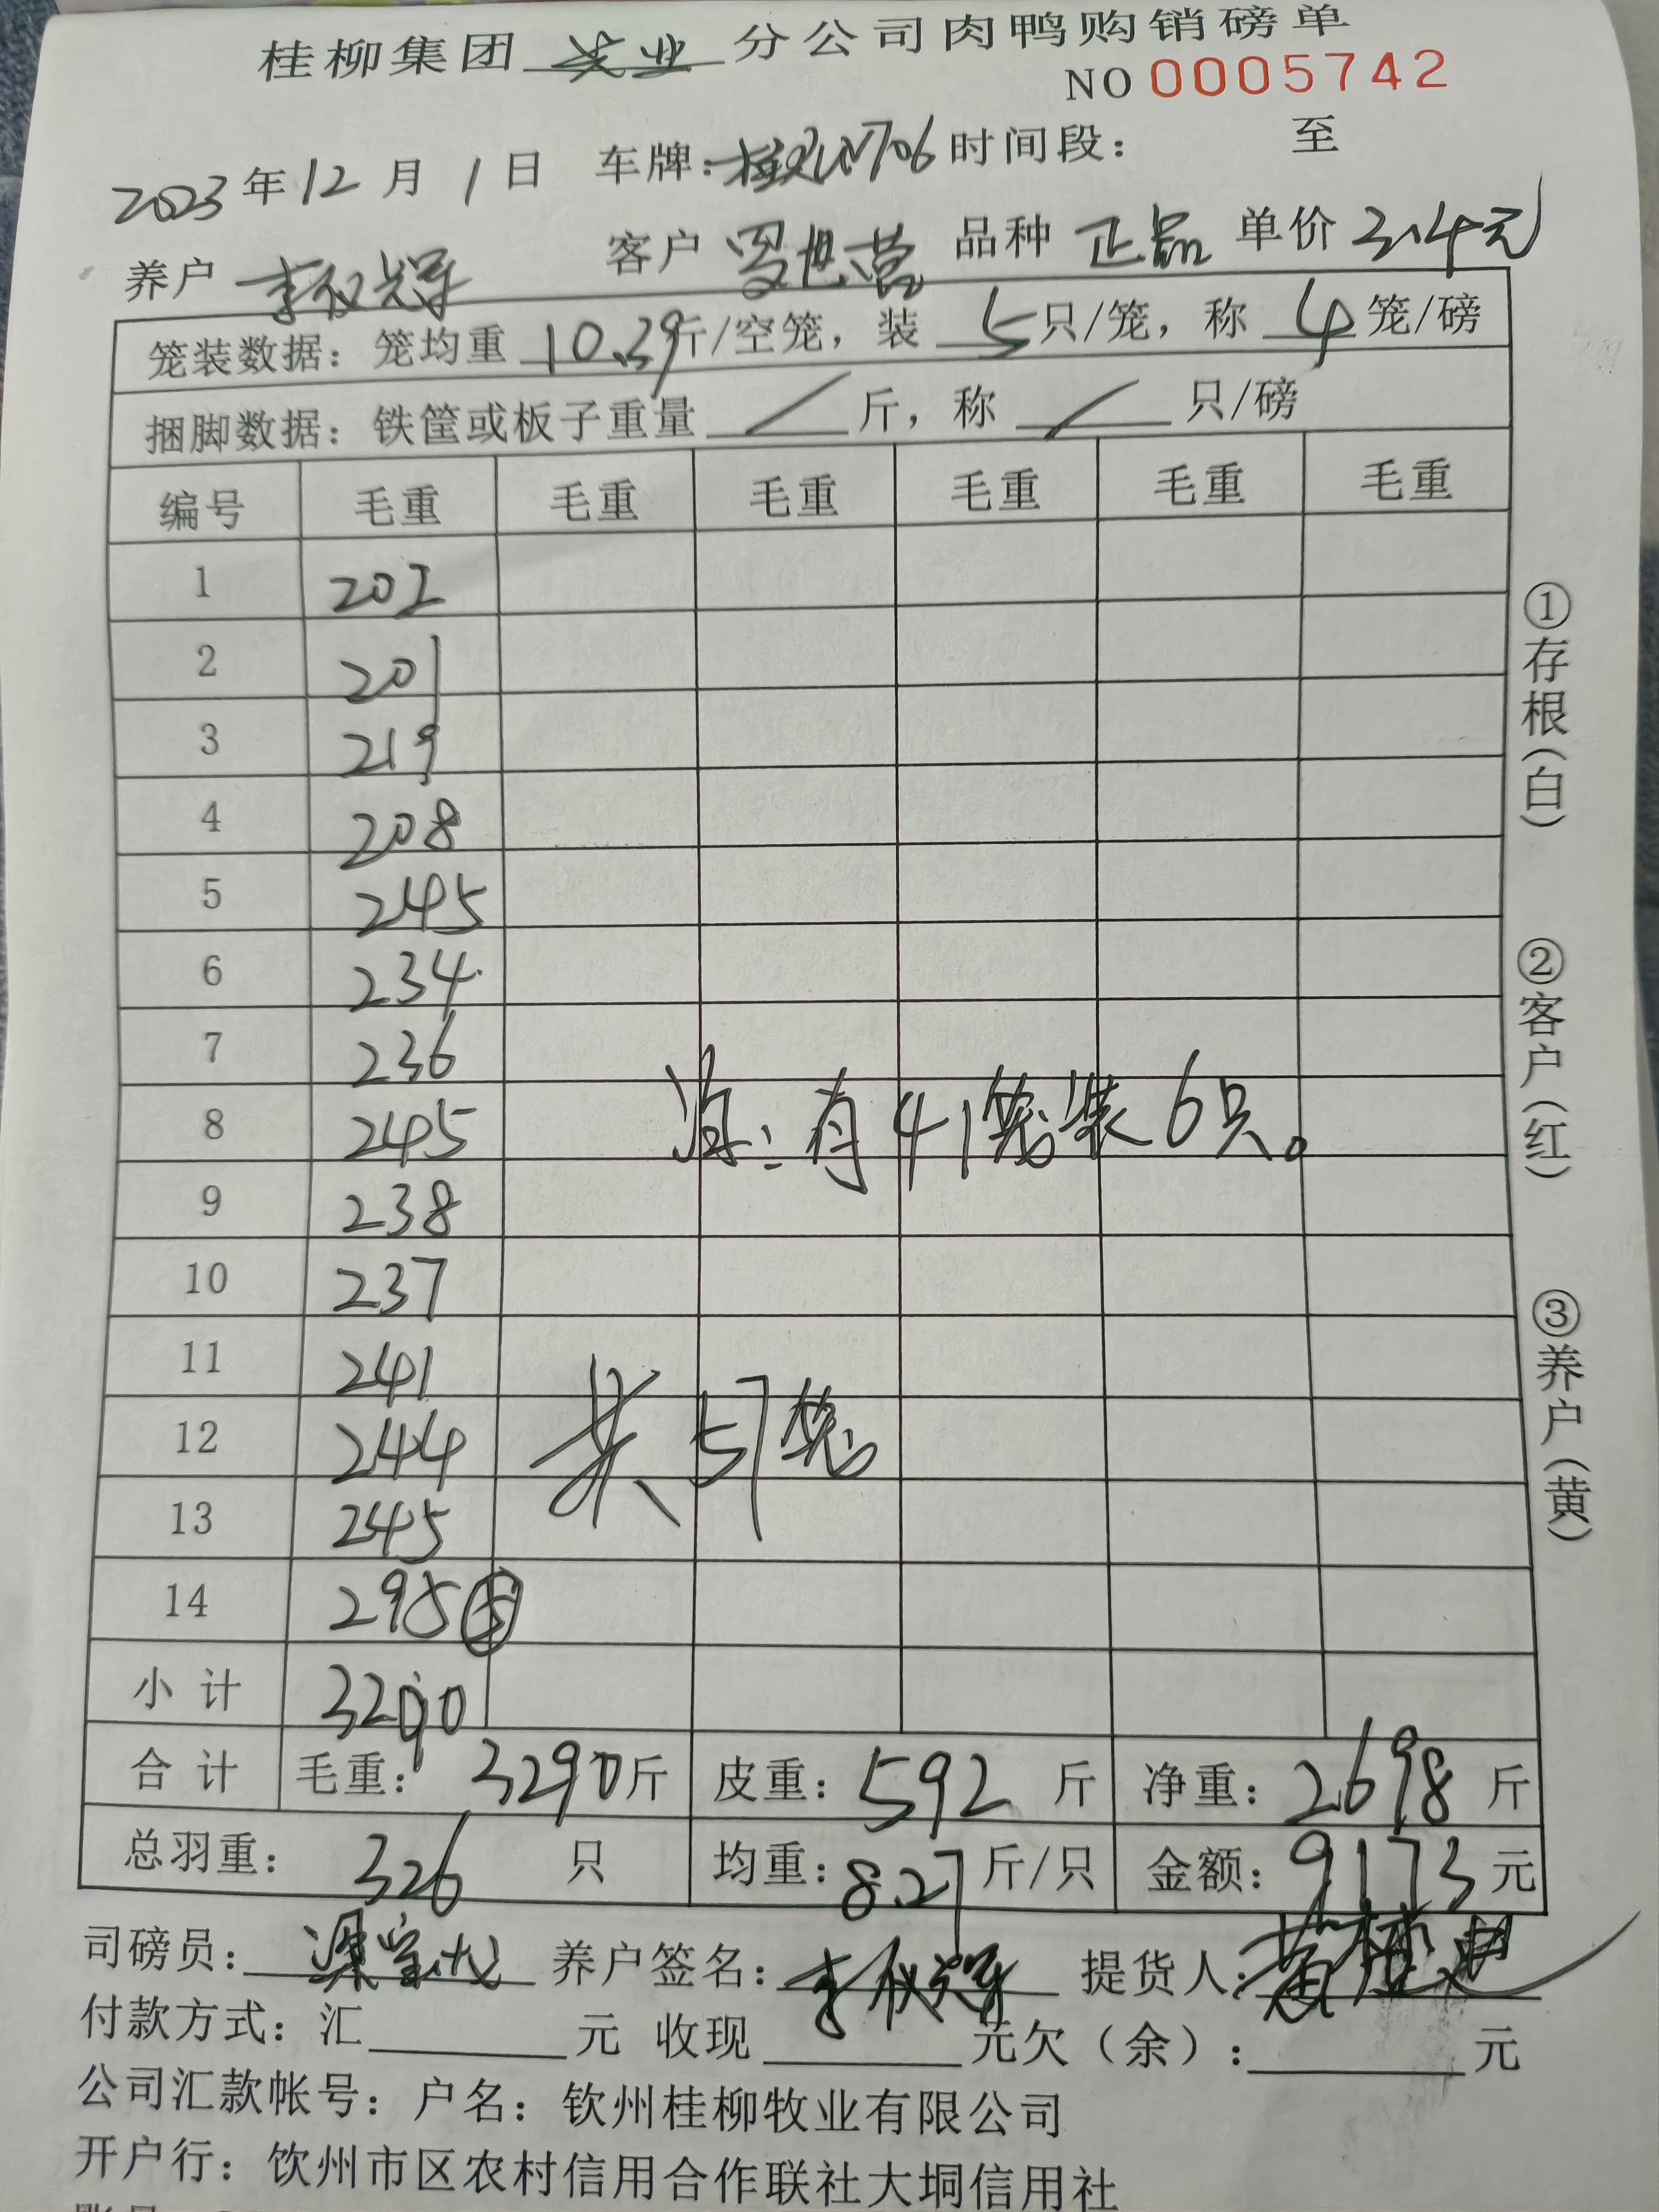 桂柳集团 牧业 分公司肉鸭购销磅单
NO 0005742
2023年12月1日 车牌: 706 时间段: 至
养户 李 客户 罗 品种 正品 单价 3.4元
笼装数据: 笼均重 10.39斤/空笼, 装 5只/笼, 称 4笼/磅
捆脚数据: 铁筐或板子重量 / 斤, 称 / 只/磅
编号 毛重 毛重 毛重 毛重 毛重 毛重
1 202
2 201
3 219
4 208
5 245
6 234
7 236
8 245 注: 有41笼装6只。
9 238
10 237
11 241
12 244 共57笼
13 245
14 295 ⑤
小计 3290
合计 毛重: 3290斤 皮重: 592斤 净重: 2698斤
总羽重: 326只 均重: 8.27斤/只 金额: 9173元
司磅员: 梁 养户签名: 李 提货人: 黄
付款方式: 汇 元 收现 元欠(余): 元
公司汇款帐号: 户名: 钦州桂柳牧业有限公司
开户行: 饮州市区农村信用合作联社大垌信用社
①存根(白)
②客户(红)
③养户(黄)